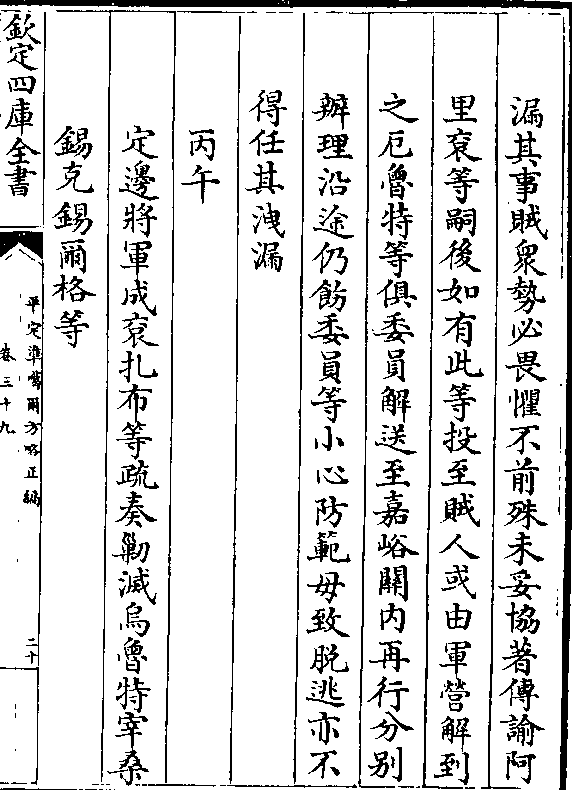 漏其事賊衆勢必畏懼不前殊未妥協著傳諭阿
里衮等嗣後如有此等投至賊人或由軍營解到
之厄魯特等俱委員解送至嘉峪關内再行分别
辦理沿途仍飭委員等小心防範毋致脱逃亦不
得任其洩漏
丙午
定邊將軍成衮扎布等疏奏勦滅烏魯特宰桑
錫克錫爾格等
欽定四庫全書
平定準噶爾方略正編
卷三十九
二十